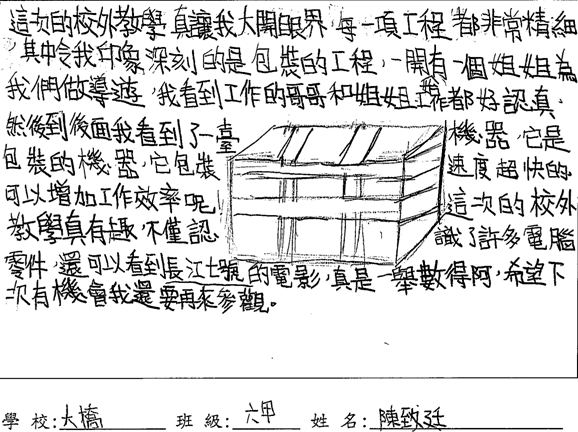 這次的校外教學真讓我大開眼界,每一項工程都非常精細
,其中令我印象深刻的是包裝的工程,一開有一個姐姐為
我們做導遊,我看到工作的哥哥和姐姐工作都好認真.
然後到後面我看到了一臺機器,它是
包裝的機器,它包裝速度超快的.
可以增加工作效率呢這次的校外
教學真有趣,不僅認識了許多電腦
零件,還可以看到長江七號的電影,真是一舉數得阿,希望下
次有機會我還要再來參觀。
學校:大橋 班級:六甲 姓名:陳致廷